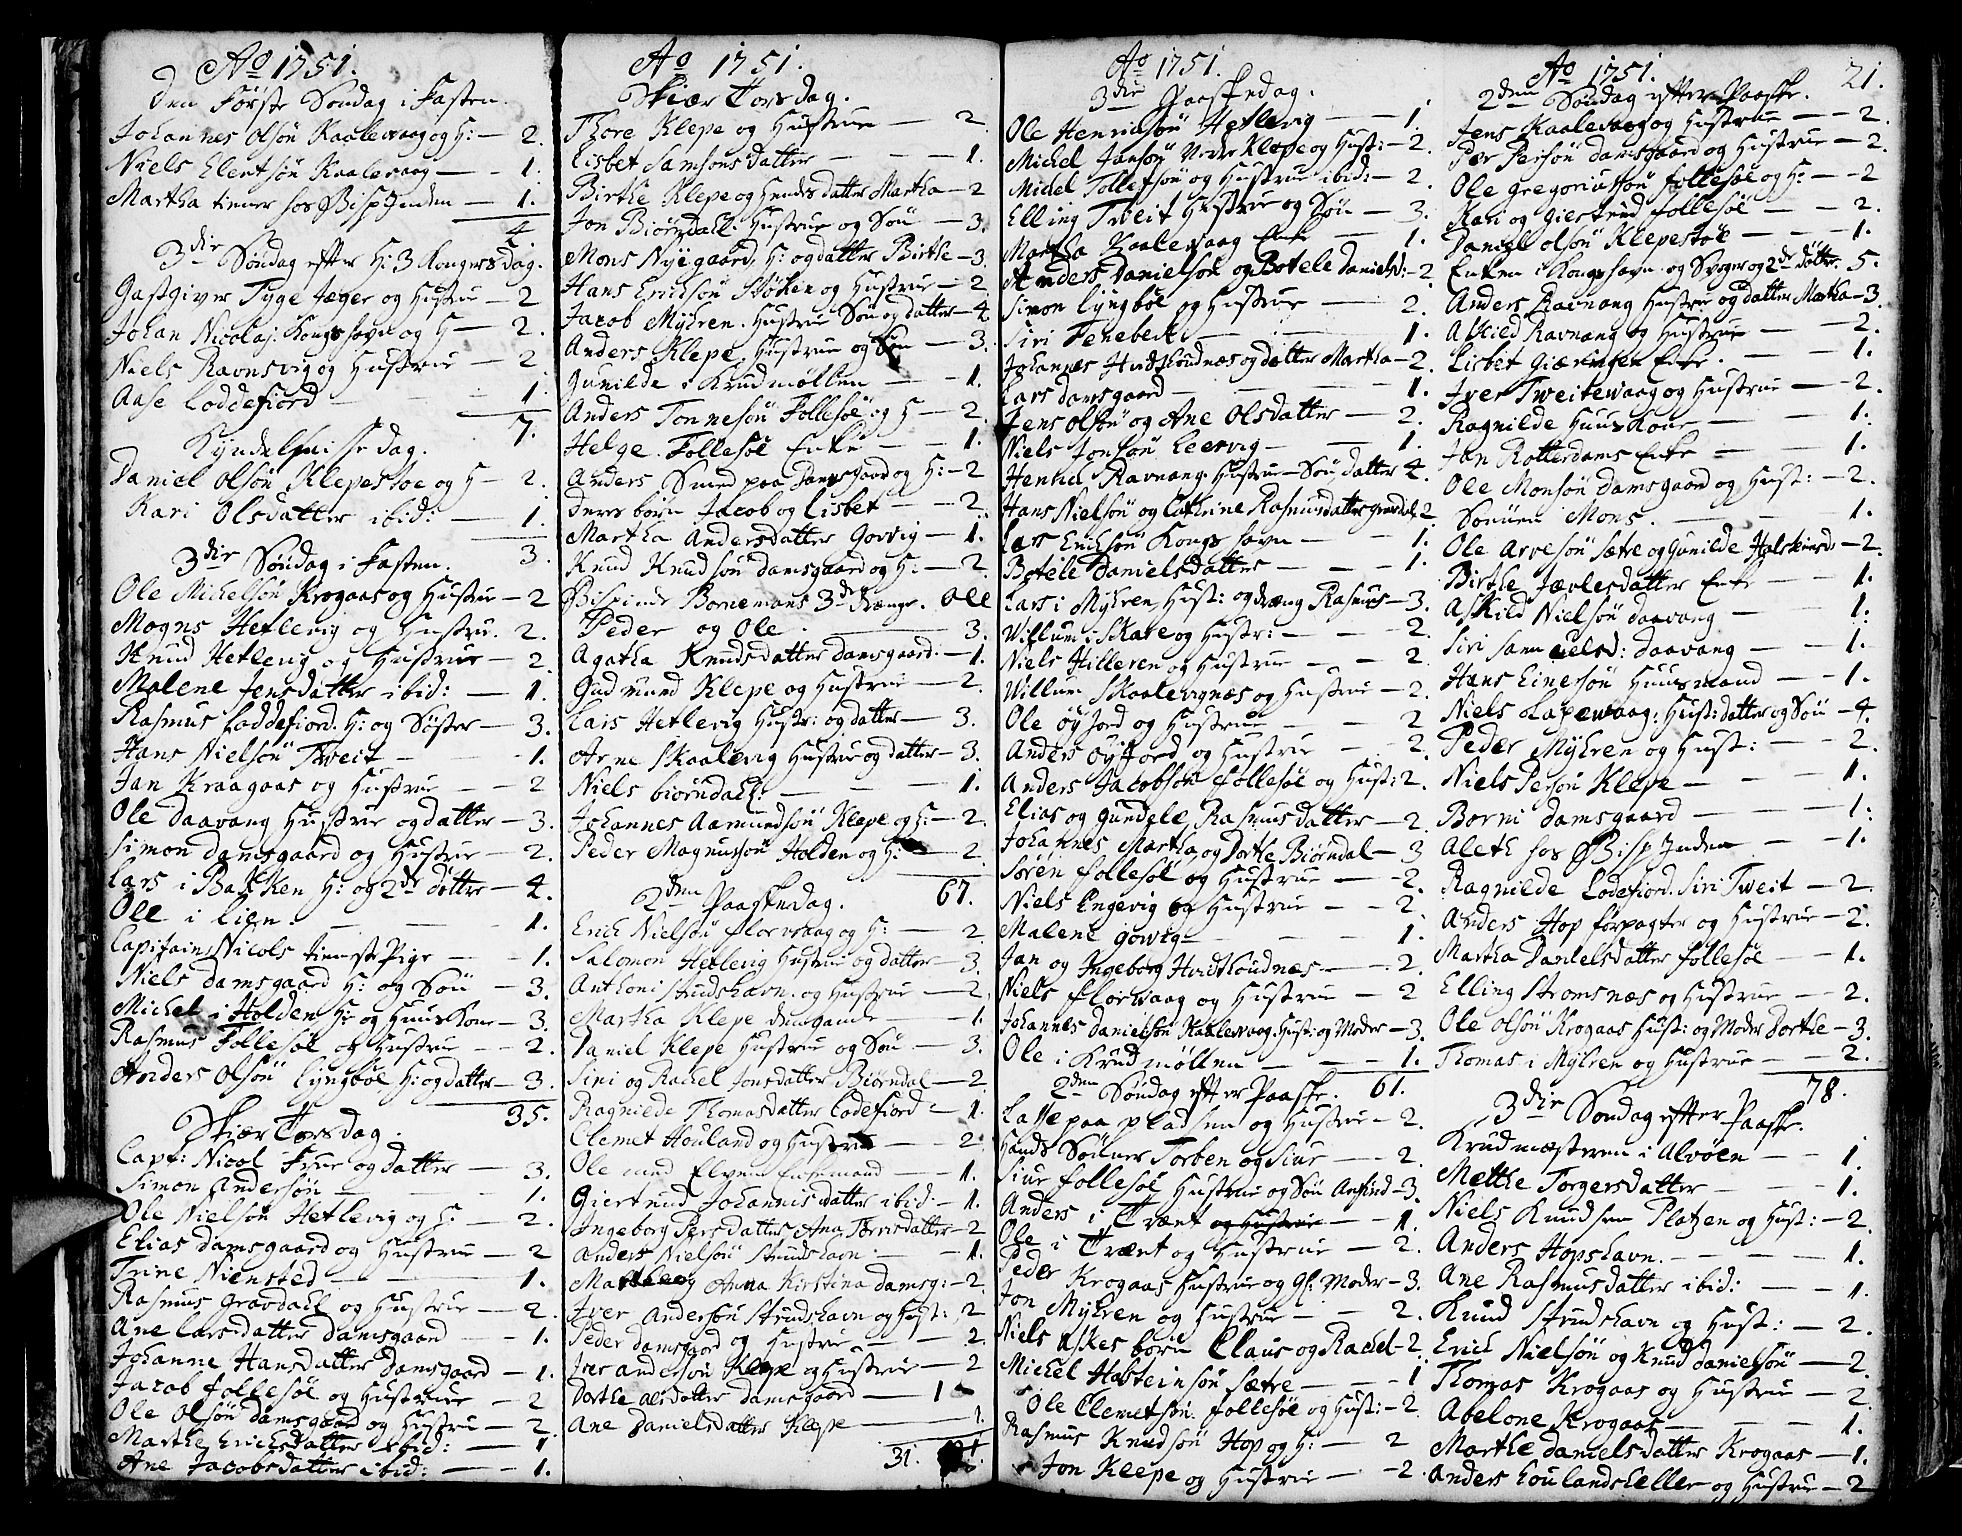 Ao 1751.
den Første Søndag i Fasten.
Johannes Olsön Kaalevaag og H: — 2.
Niels Elentsön Kaalevaag — 1.
Martha tiener hos Bisp Inden — 1.
4
3die Søndag efter H: 3 Kongers dag.
Gastgiver Tyge Jæger og Hustru — 2
Johan Nicolaj Kongshavn og H — 2.
Niels Ravnsvig og Hustrue — 2.
Aase Loddefiord — 1.
7.
Kyndelmisse dag.
Daniel Olsön Klepestøe og H — 2.
Kari Olsdatter ibid: — 1.
3.
3die Søndag i Fasten.
Ole Michelsön Krogaas og Hustrue — 2
Mogns Hetlevig og Hustru. 2.
Knud Hetlevig og Hustrue — 2.
Malene Jensdatter ibid: — 1.
Rasmus Loddefiord. H: og Söster — 3.
Hans Nielsön Tweit — 1.
Jan Kraagaas og Hustrue — 2
Ole Daavang Hustrue og datter — 3.
Simon Damsgaard og Hustrue — 2.
Lars i Bakken H: og 2de døttre — 4.
Ole i Lien. — 1.
Capitain Nicols tieneste Pige — 1.
Niels Damsgaard H: og Sön — 3.
Michel i Holden H: og Huuskone — 3.
Rasmus Follesøe og Hustru — 2.
Anders Olsön Lyngbøe H: og datter — 3.
35.
Skiær Torsdag.
Capt: Nicol Frue og datter — 3.
Simon Andersön — 1.
Ole Nielsön Hetlevig og H: — 2.
Elias Damsgaard og Hustrue — 2
Trine Niensted — 1.
Rasmus Gravdahl og Hustrue — 2.
Ane Larsdatter Damsgaard — 1.
Johanne Hansdatter Damsgaard — 1.
Jacob Follesøe og Hustrue — 2
Ole Olsön Damsgaard og Hustru — 2.
Marthe Erichsdatter ibid: — 1.
Ane Jacobsdatter ibid: — 1.
Ao 1751.
Skiær Torsdag.
Thore Klepe og Hustrue — 2.
Lisbet Samsonsdatter — 1.
Birthe Klepe og hendes datter Martha — 2
Jon Biørndahl: Hustrue og Sön — 3.
Mons Nyegaard, H: og datter Birthe — 3.
Hans Erichsön Støken og Hustrue — 2.
Jacob Myhren. Hustrue Sön og datter — 4.
Anders Klepe, Hustrue og Sön — 3.
Gunilde i Krudmøllen — 1.
Anders Tonnesön Follesøe og H — 2.
Helge Follesøe Enke — 1.
Anders Smed paa Damsgaard og H: — 2
Deres børn Jacob og Lisbet — 2.
Martha Andersdatter Govvig — 1.
Knud Knudsön Damsgaard og H: — 2.
Bispinde Bornemans 3de drænge. Ole
Peder og Ole. — 3.
Agatha Knudsdatter Damsgaard: — 1.
Gudmund Klepe og Hustrue — 2.
Lars Hetlevig Hustr: og datter — 3.
Arne Skaalevig Hustrue og datter — 3.
Niels biørndahl: — 1.
Johannes Aamundsön Klepe og H: — 2.
Peder Magnusön Holden og H: — 2.
67.
2den Paaskedag.
Erich Nielsön Florvaag og H: — 2.
Salomon Hetlevig Hustrue og datter — 3.
Anthoni Strudshavn. og Hustrue — 2.
Martha Klepe den gamle — 1.
Daniel Klepe Hustrue og Sön — 3.
Sini og Rachel Jonsdatter Biørndal — 2.
Ragnilde Thomasdatter Lodefiord — 1.
Clemet Houland og Hustrue — 2.
Ole ved Elven Enkemand — 1.
Giertrud Johannisdatter ibid: — 1.
Ingeborg Persdatter, Ane Torrisdatter — 2
Anders Nielsön Strudshavn — 1.
Marthe og Anna Kirstina Damsg: — 2.
Iver Andersön Strudshavn og Hust: 2
Peder Damsgaard og Hustrue — 2.
Iver Andersön Klepe og Hustrue — 2
Dorthe Alisdatter Damsgaard — 1
Ane Danielsdatter Klepe — 1.
31.
Ao 1751.
3die Paaskedag.
Ole Henrichsön Hetlevig — 1.
Michel Jansön Nedre Klepe og Hust: — 2.
Michel Tollefsön og Hustrue ibid: — 2.
Elling Tveit Hustrue og Sön — 3.
Martha Kaalevaag Enke — 1.
Anders Danielsøn og Botele Danielsd: — 2.
Simon Lyngbøe og Hustrue — 2.
Siri Tenebech — 1.
Johannes Hvidhoudnæs og datter Martha — 2.
Lars Damsgaard — 1.
Jens Olsön og Ane Olsdatter — 2.
Niels Jonsön Leervig — 1.
Henrich Ravnang Hustrue — Sön datter 4.
Hans Nielsön og Cathrine Rasmusdatter Gravdal 2
Lars Erichsön Kongshavn — 1.
Botele Danielsdatter — 1.
Lars i Myhren, Hust: og dræng Rasmus — 3.
Willum i Skare og Hustr: — 2.
Niels Hilleren og Hustrue — 2.
Willum Skaalevignæs og Hustrue — 2.
Ole Øyjord og Hustrue — 2
Anders Øyjord og Hustrue — 2.
Anders Jacobsön Follesøe og Hust: 2.
Elias og Gundele Rasmusdatter — 2.
Johannes Martha og Dorthe Biørndal — 3
Sören Follesøe og Hustrue — 2.
Niels Engevig og Hustrue — 2.
Malene Gowig — 1.
Jan og Ingeborg Hvidhoudnæs — 2.
Niels Florvaag og Hustrue — 2
Johannes Danielsön Kaalevaag, Hust: og Moder — 3.
Ole i Krudmøllen — 1.
61.
2den Søndag efter Paaske.
Lasse paa pladsen og Hustrue — 2.
Hands Sönner Torben og Siur — 2.
Siur Follesøe Hustrue og Sön Anfind — 3.
Anders i Trænt og Hustrue — 1.
Ole i Trænt og Hustrue — 2.
Peder Krogaas Hustrue og Gl: Moder — 3.
Jon Myhren og Hustrue — 2.
Niels Askes børn Claus og Rachel — 2.
Michel Halsteinsön Sætre — 1
Ole Clemetsön. Follesøe og Hust: — 2.
Rasmus Knudsön Hop og H: — 2
Jon Klepe og Hustrue — 2.
Ao 1751.
21.
2den Søndag efter Paaske.
Jens Kaalevaag og Hustrue — 2.
Peer Persön Damsgaard og Hustrue — 2.
Ole Gregoriusön Follesøe og H: — 2
Kari og Giertrud Follesøe — 2.
Daniel Olsön Klepestøe — 1.
Enken i Kongshavn og Svoger og 2de döttre. 5.
Anders Ravnang Hustrue og datter Martha — 3.
Askild Ravnang og Hustrue — 2.
Lisbet Giæringet Enke. — 1.
Iver Tweitevaag og Hustrue — 2.
Ragnilde Huuskone — 1.
Jan Rotterdams Enke — 1.
Ole Monsön Damsgaard og Hust: — 2.
Sönnen Mons. — 1.
Ole Arvesön Sætre og Gunilde Halskiærd — 2.
Birthe Jærlesdatter Enke — 1.
Askild Nielsön Daavang — 1.
Siri Samuelsd: Daavang — 1.
Hans Einersön Huusmand — 1.
Niels Lapewaag: Hust: datter og Sön — 4.
Peder Myhren og Hust: — 2.
Niels Persön Klepe — 1.
Borni Damsgaard — 1.
Aleth hos Bisp Inden — 1.
Ragnilde Lodefiord. Siri Tweit — 2.
Anders Hop forpagter og Hustrue — 2.
Martha Danielsdatter Follesøe — 1.
Elling Strømsnæs og Hustrue — 2.
Ole Olsön Krogaas Hust: og Moder Dorthe — 3.
Thomas i Myhren og Hustrue — 2.
78.
3die Søndag efter Paaske.
Krudmæsteren i Alvøen — 1.
Methe Torgersdatter — 1.
Niels Knudsen Platzen og Hust: — 2.
Anders Hopshavn. — 1.
Ane Rasmusdatter ibid: — 1.
Knud Strudshavn og Hust: — 2.
Erich Nielsön og Knud Danielsön — 2.
Thomas Krogaas og Hustrue — 2.
Abelone Krogaas — 1.
Marthe Danielsdatter Krogaas — 1.
Anders Loulandshelle og Hustrue — 2